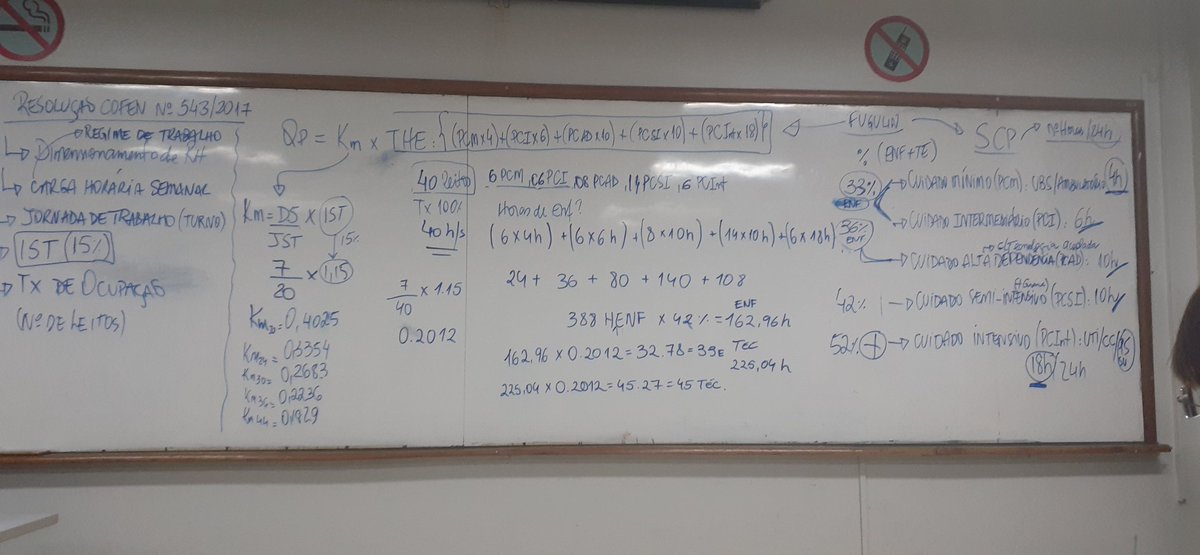 RESOLUÇÃO COFEN Nº 543/2017
REGIME DE TRABALHO
Dimensionamento de RH
CARGA HORÁRIA SEMANAL
JORNADA DE TRABALHO (TURNO)
IST (15%)
TX DE OCUPAÇÃO
(Nº DE LEITOS)
QP = Km x THE: {(PCM x 4) + (PCI x 6) + (PCAD x 10) + (PCSI x 10) + (PCInt x 18)}
Km = DS x IST
JST
15%
7 x 1,15
20
Km20 = 0,4025
Km24 = 0,3354
Km30 = 0,2683
Km36 = 0,2236
Km44 = 0,1829
40 leitos
Tx 100%
40 h/s
7 x 1.15
40
0.2012
6 PCM, 06 PCI, 08 PCAD, 14 PCSI, 6 PCInt
Horas de Enf?
(6 x 4h) + (6 x 6h) + (8 x 10h) + (14 x 10h) + (6 x 18h)
24 + 36 + 80 + 140 + 108
388 HENF x 42% = 162,96h
ENF
162.96 x 0.2012 = 32.78 =
TEC
225,04 h
225,04 x 0.2012 = 45.27 = 45 TÉC.
FUGULIN
SCP
nº Horas/24h
% (ENF + TE)
33% ENF CUIDADO MÍNIMO (PCM): UBS/AMBULATÓRIO 4h
CUIDADO INTERMEDIÁRIO (PCI) 6h
36% ENF
CUIDADO ALTA DEPENDÊNCIA (PCAD): 10h
42% CUIDADO SEMI-INTENSIVO (PCSI): 10h
52% + CUIDADO INTENSIVO (PCInt): UTI/CC/
18h/24h